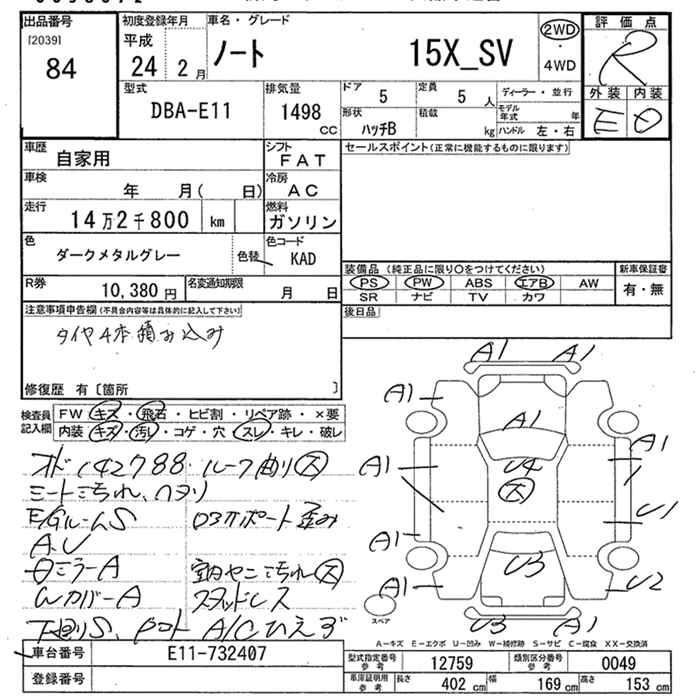 出品番号 初度登録年月 車名・グレード 2WD 評価点
[2039] 平成 ノート 15X_SV ・ R
84 24 2月 4WD
型式 排気量 ドア 5 定員 5 人 ディーラー・並行 外装 内装
DBA-E11 1498 cc 形状 ハッチB 積載 kg モデル年式 年 E D
ハンドル 左・右
車歴 自家用 シフト FAT セールスポイント(正常に機能するものに限ります)
車検 年 月( 日) 冷房 AC
走行 14万2千800 km 燃料 ガソリン
色 ダークメタルグレー 色替 色コード KAD
装備品(純正品に限り○をつけてください) 新車保証書
R券 10,380円 名変通知期限 月 日 PS PW ABS エアB AW 有・無
SR ナビ TV カワ
注意事項申告欄(不具合内容等は具体的に記入して下さい) 後日品
タイヤ4本積み込み
修復歴 有〔箇所 〕
検査員記入欄 FW キズ・飛石・ヒビ割・リペア跡・×要
内装 キズ・汚れ・コゲ・穴・スレ・キレ・破レ
オド142788 ルーフ曲り大
シートよごれ、ヘタリ
E/GルームS
A.U
日ミラーA 室内ヤニよごれ大
WカバーA スタッドレス
下廻りS、 A/Cひえず
A1 A1
A1 A1
A1 U4 大 A1
U1
A1 U3
A1 U2
U3 A1
スペア
A―キズ E―エクボ U―凹み W―補修跡 S―サビ C―腐食 XX―交換済
車台番号 E11-732407 型式指定番号 参考 12759 類別区分番号 参考 0049
登録番号 車庫証明用 参考 長さ 402 cm 幅 169 cm 高さ 153 cm